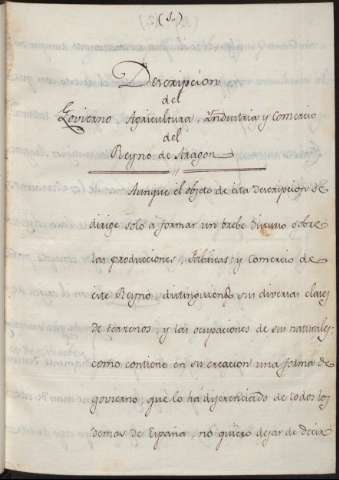 (1.)
Descripcion
del
Govierno, Agricultura, Industria y Comercio
del
Reyno de Aragon
Aunque el objeto de esta Descripcion se
dirige solo a formar un brebe Discurso sobre
las producciones, Fabricas, y Comercio de
este Reyno, distinguiendo sus diversas clases
de terrenos, y las ocupaciones de sus naturales:
como contiene en su creacion una forma de
govierno, que lo ha diferenciado de todos los
demas de España, no quiero dejar de decir